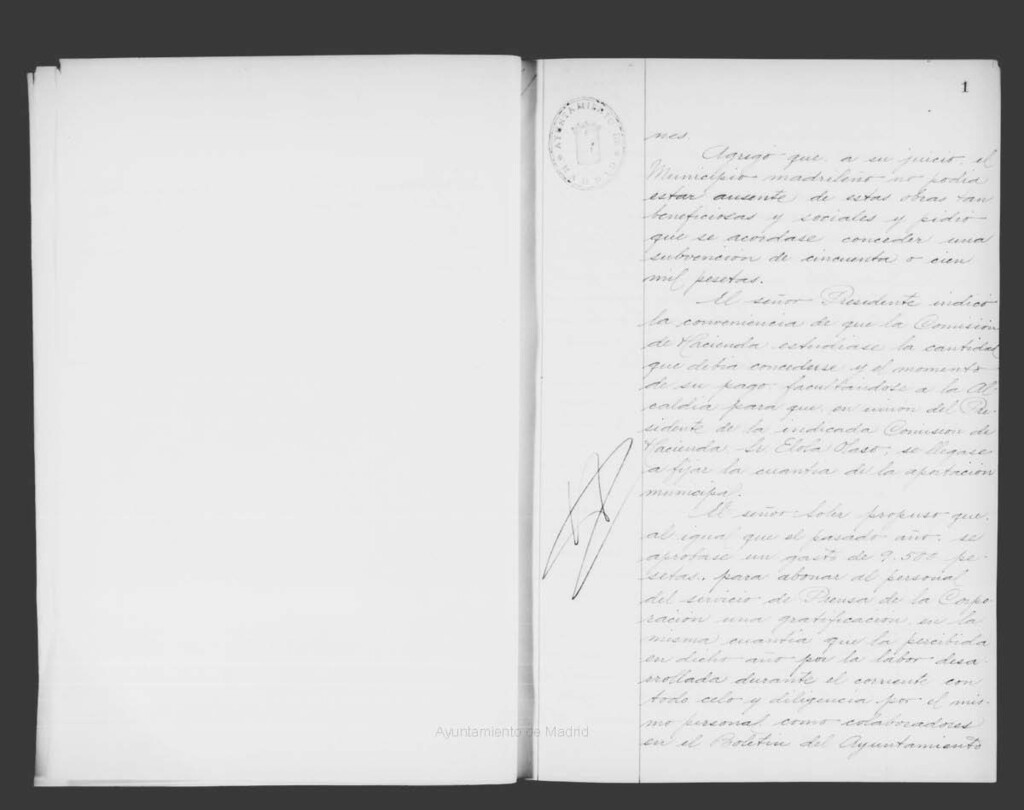 1
AYUNTAMIENTO DE MADRID
nes.
Agregó que, a su juicio, el
Municipio madrileño no podia
estar ausente de estas obras tan
beneficiosas y sociales y pidió
que se acordase conceder una
subvención de cincuenta o cien
mil pesetas.
El señor Presidente indicó
la conveniencia de que la Comisión
de Hacienda estudiase la cantidad
que debia concederse y el momento
de su pago, facultándose a la Al
caldia para que, en unión del Pre-
sidente de la indicada Comisión de
Hacienda, Sr. Elola Olaso, se llegase
a fijar la cuantia de la aportación
municipal.
El señor Soler propuso que,
al igual que el pasado año, se
aprobase un gasto de 9.500 pe-
setas, para abonar al personal
del servicio de Prensa de la Corpo
ración una gratificación, en la
misma cuantia que la percibida
en dicho año por la labor desa
rrollada durante el corriente con
todo celo y diligencia por el mis-
mo personal como colaboradores
en el Boletín del Ayuntamiento
Ayuntamiento de Madrid